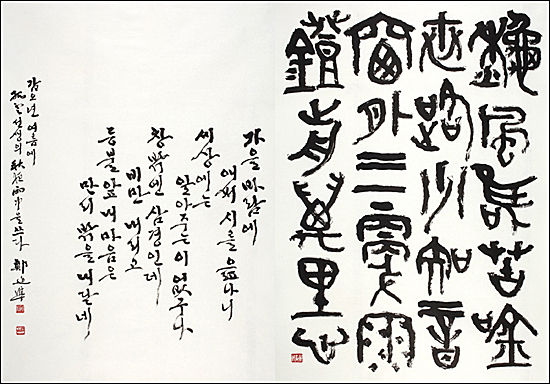 龝風惟苦唫
世路少知音
窗外三更雨
鐙前萬里心
가을 바람에
애써 시를 읊나니
세상에는
알아주는 이 없구나
창밖엔 삼경인데
비만 내리고
등불 앞 내 마음은
만리 밖을 내닫네
갑오년 여름에
孤雲선생의 秋夜雨中을 쓰다 鄭